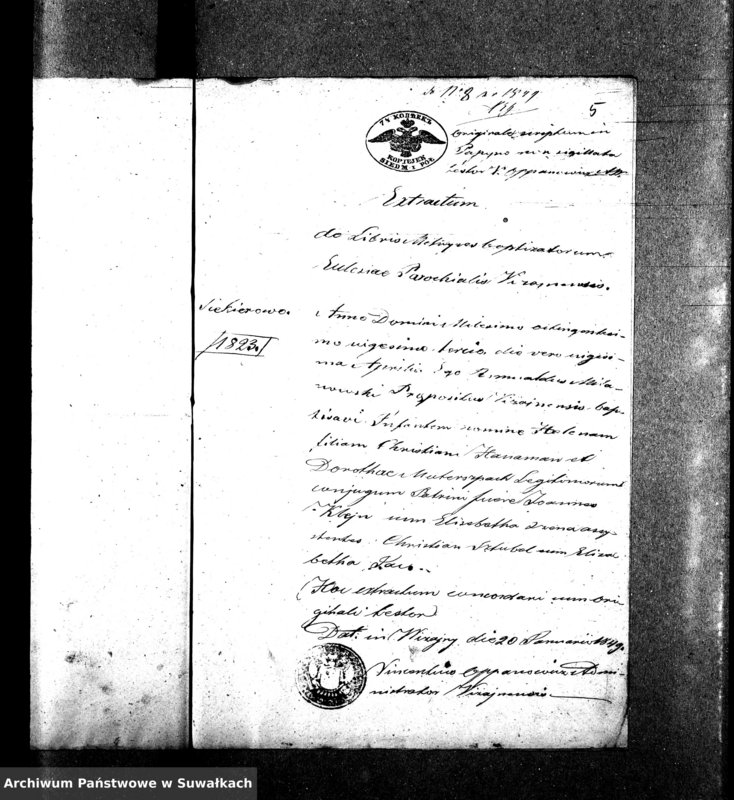 do № 8 z r 1849
5
7½ КОПѢЕКЪ
KOPIEJEK
SIEDM i PÓŁ
Originale scriptum in
Papyro non sigillata
testor V. Oppanowicz Ad.
Extractum
de Libris Metryces baptizatorum
Eclesiae Parochialis Vizajnensis.
Siekierowo.
1823.
Anno Domini Milesimo octingentesi-
mo vigesimo tercio die vero vigesi-
ma Aprilis Ego Romualdus Mila-
nowski Prepositus Vizajnensis bap-
tisavi Infantem nomine Helenam
filiam Christiani Hanaman et
Dorothae Muterszpach Legitimorum
conjugum Patrini fuere Joannes
Klejn cum Elizabetha
Christian Sztubel cum Eliza
betha
(Hoc extractum concordari cum Ori-
ginali testor)
Dat. in Wizajny die 20 Januarii 1849.
Vincentius Oppanowicz Admi-
nistrator Wizajnensis
Archiwum Państwowe w Suwałkach